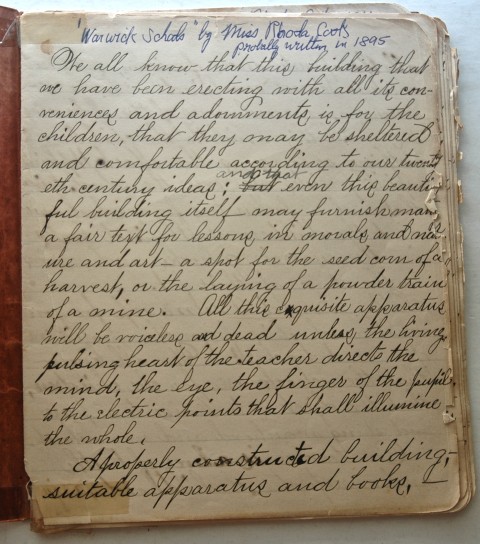 "Warwick Schools" by Miss Rhoda Cook
probally written in 1895
We all know that this building that
we have been erecting with all its con-
veniences and adornments is for the
children, that they may be sheltered
and comfortable according to our twenti
and that
eth century ideas; but even this beauti-
ful building itself may furnish many
a fair text for lessons in morals and nat
ure and art – a spot for the seed corn of a
harvest, or the laying of a powder train
of a mine. All this exquisite apparatus
will be voiceless and dead unless, the living,
pulsing heart of the teacher directs the
mind, the eye, the finger of the pupil
to the electric points that shall illumine
the whole.
A properly constructed building,
suitable apparatus and books, –